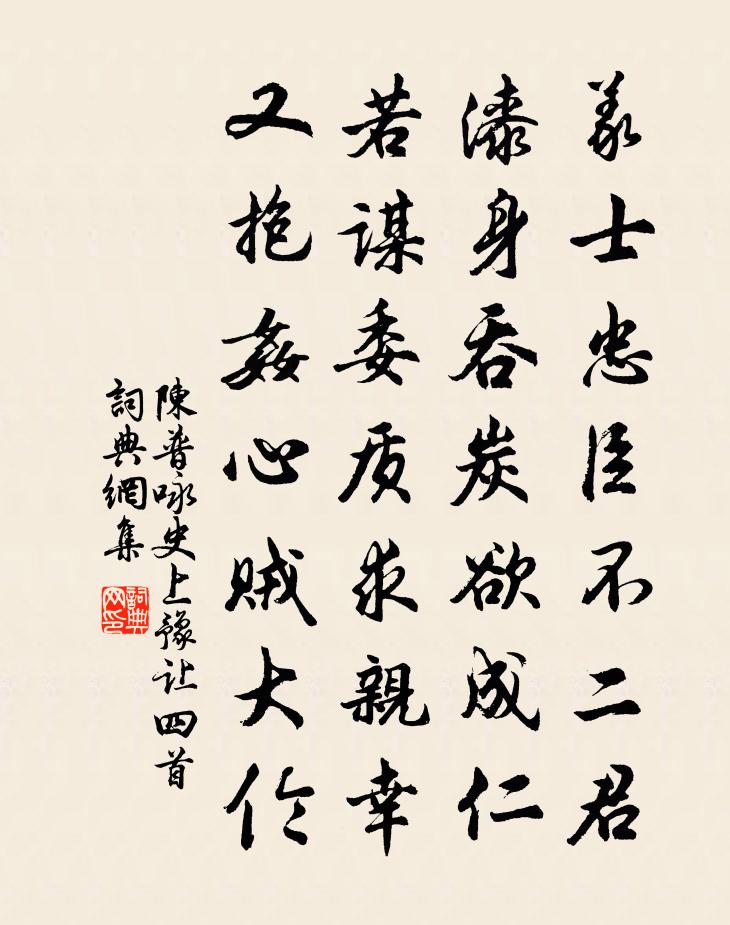 義士忠臣不二君
漆身吞炭欲成仁
若謀委质求親幸
又抱姦心賊大伦
陳普咏史上豫让四首
詞典網集
詞典网印